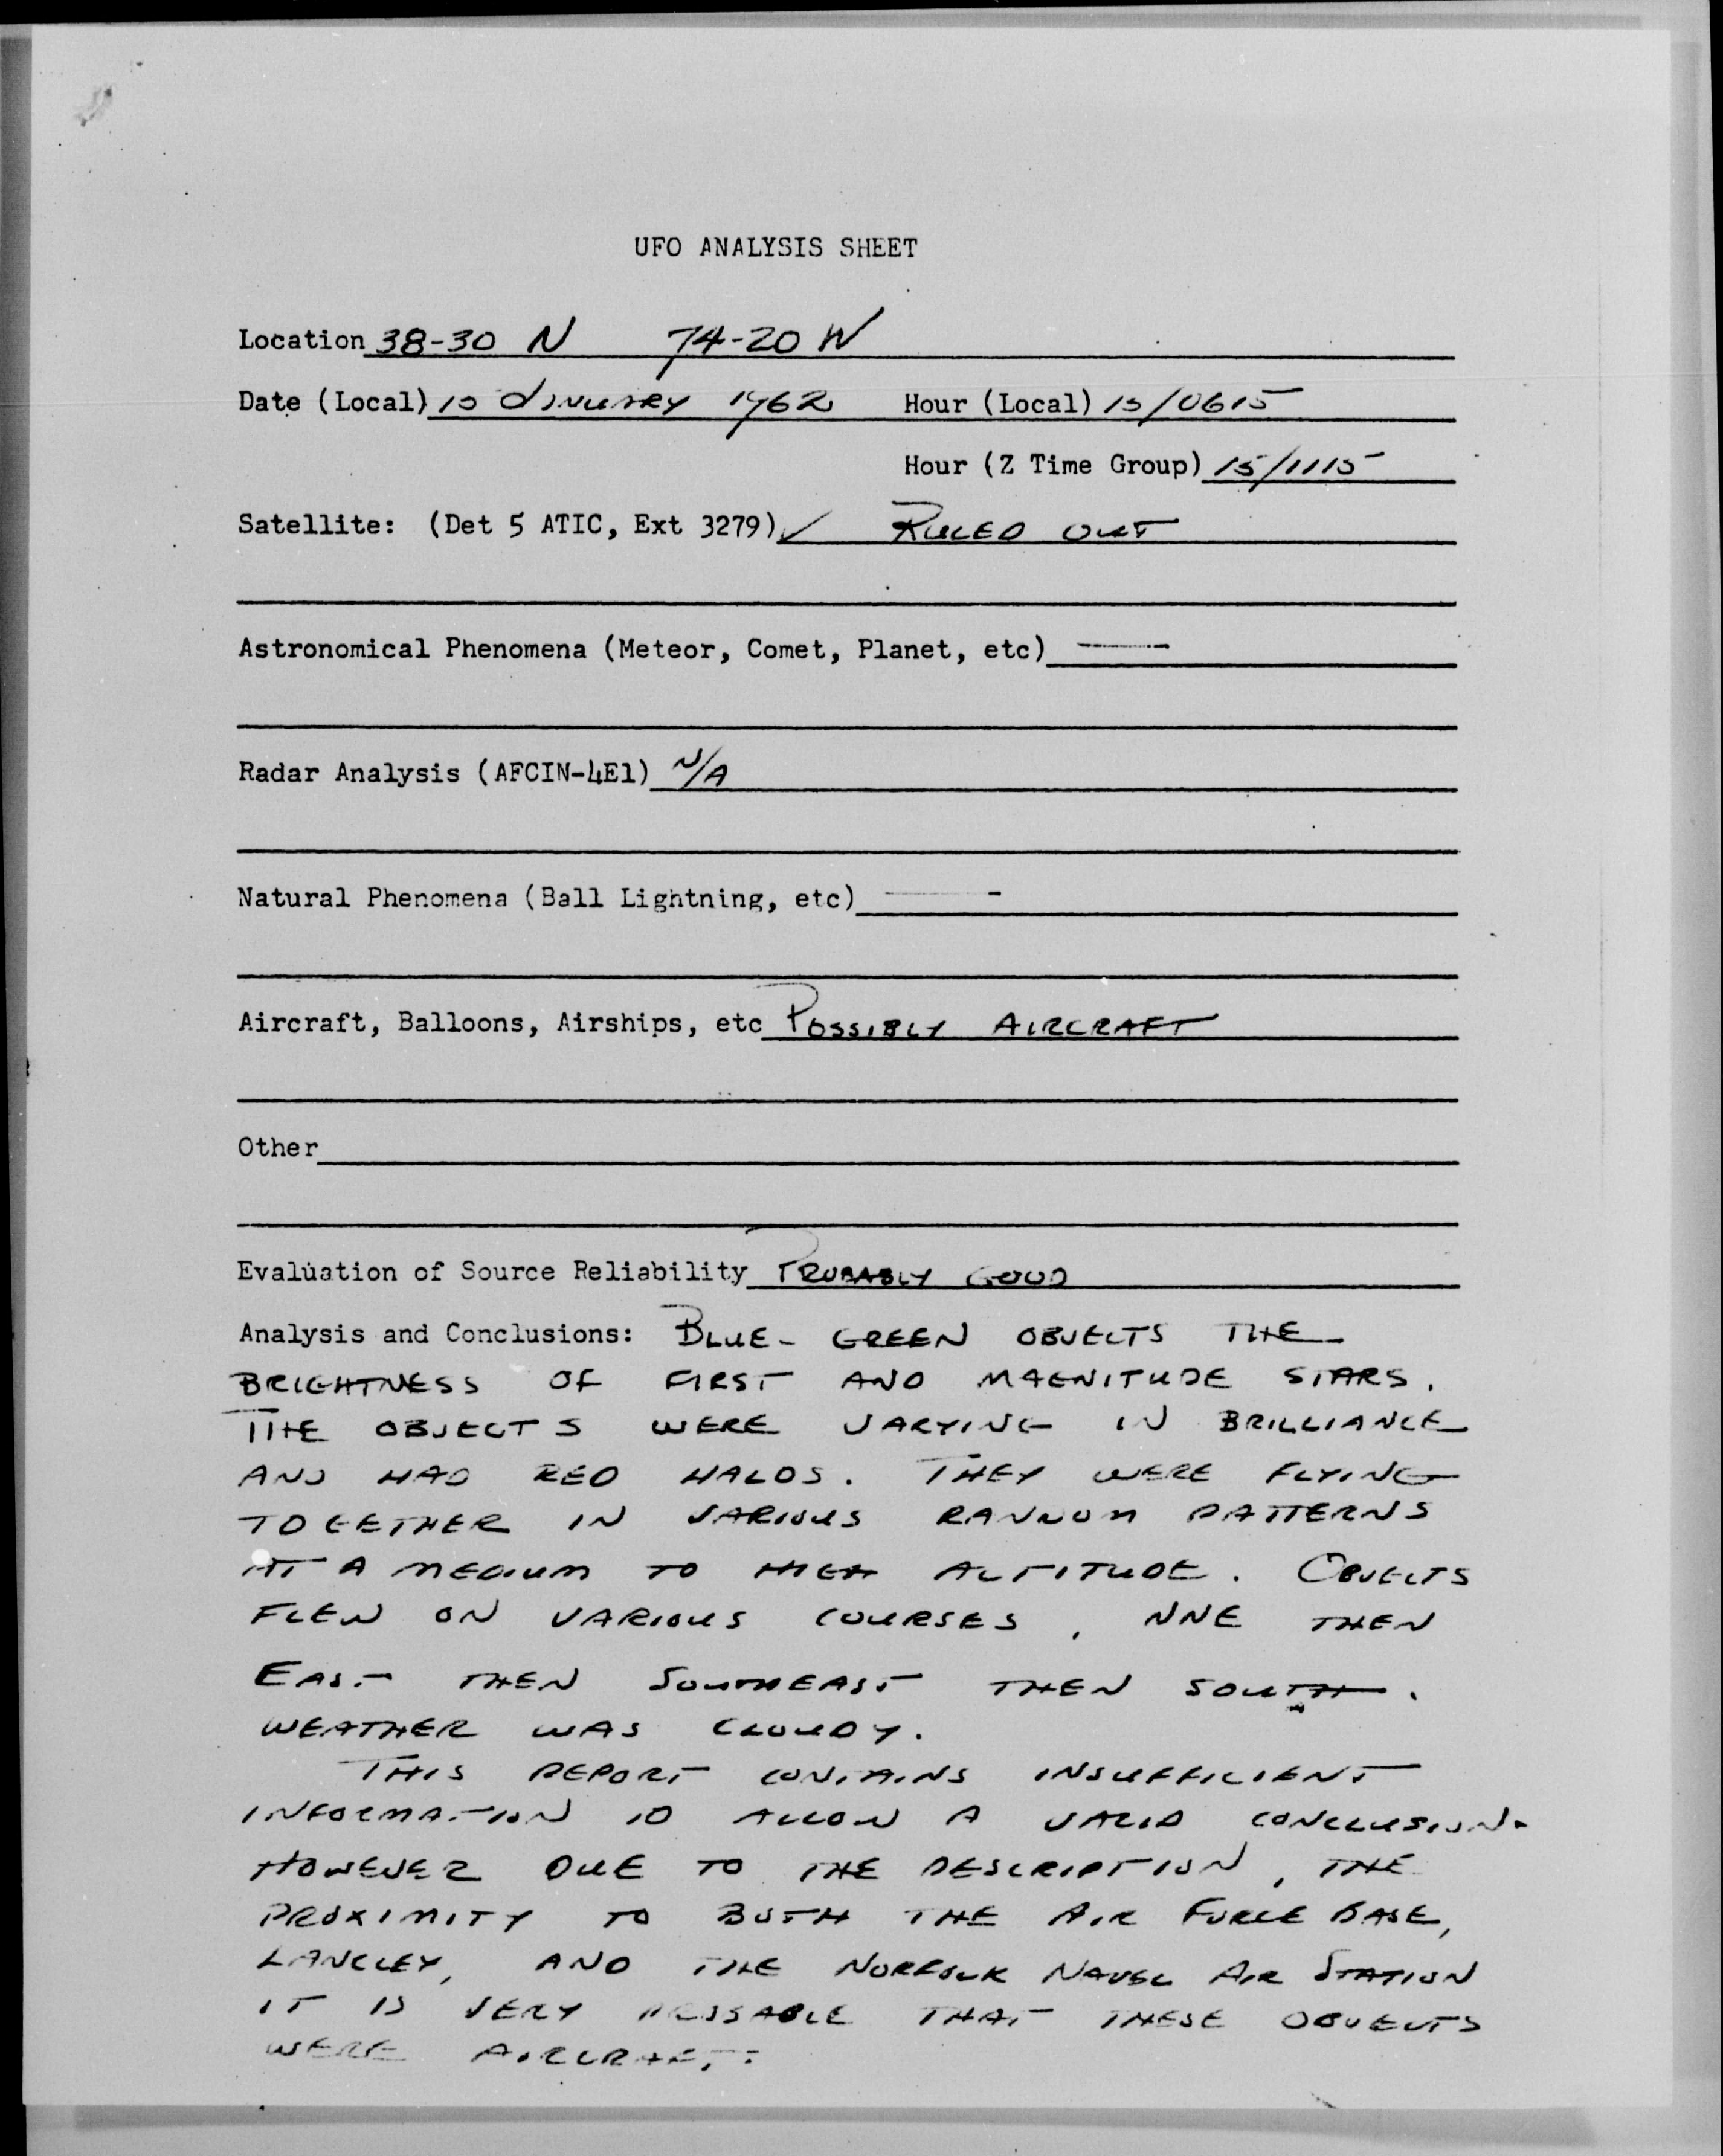 UFO ANALYSIS SHEET
Location 38-30 N 74-20 W
Date (Local) 15 January 1962 Hour (Local) 15/0615
Hour (Z Time Group) 15/1115
Satellite: (Det 5 ATIC, Ext 3279) ✓ RULED OUT
Astronomical Phenomena (Meteor, Comet, Planet, etc) —
Radar Analysis (AFCIN-4E1) N/A
Natural Phenomena (Ball Lightning, etc) —
Aircraft, Balloons, Airships, etc POSSIBLY AIRCRAFT
Other
Evaluation of Source Reliability PROBABLY GOOD
Analysis and Conclusions: BLUE-GREEN OBJECTS THE
BRIGHTNESS OF FIRST AND MAGNITUDE STARS.
THE OBJECTS WERE VARYING IN BRILLIANCE
AND HAD RED HALOS. THEY WERE FLYING
TOGETHER IN VARIOUS RANDOM PATTERNS
AT A MEDIUM TO HIGH ALTITUDE. OBJECTS
FLEW ON VARIOUS COURSES, NNE THEN
EAST THEN SOUTHEAST THEN SOUTH.
WEATHER WAS CLOUDY.
THIS REPORT CONTAINS INSUFFICIENT
INFORMATION TO ALLOW A VALID CONCLUSION.
HOWEVER DUE TO THE DESCRIPTION, THE
PROXIMITY TO BOTH THE AIR FORCE BASE,
LANGLEY, AND THE NORFOLK NAVAL AIR STATION
IT IS VERY THAT THESE OBJECTS
WERE AIRCRAFT.